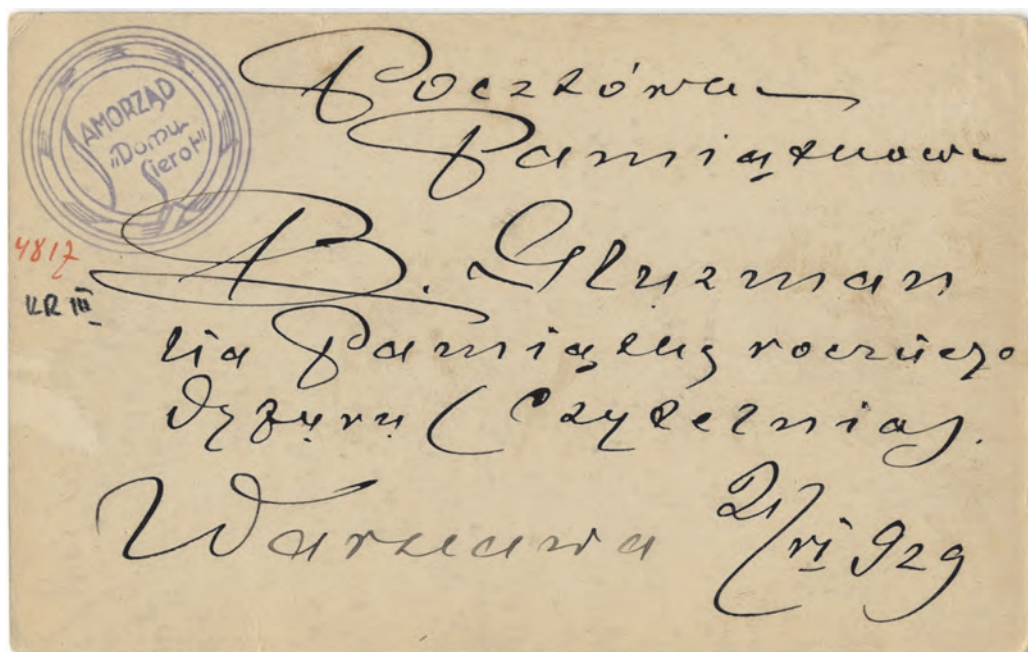 SAMORZĄD
"Domu
Sierot"
Pocztówka
Pamiątkowa
B. Gluzman
na Pamiątkę rocznego
Dyżuru (Czytelnia).
Warszawa 21/VI 929
4817
KR III